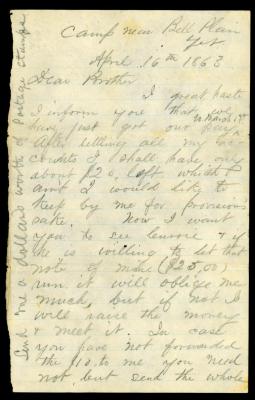 Camp near Bell Plain
April 16th 1863
Dear Brother
I great haste
I inform you that we
have just got our pay
to March 1st
After settling all my
credits I shall have only
about $20, left which
amt I would like to
keep by me for provisions
sake. Now I want
you to see & if
he is willing to let that
note of mine ($25,00)
run it will oblige me
much, but if not I
will raise the money
& meet it. In case
you have not forwarded
the $10 to me you need
not but send the whole
Send me a dollars worth of Postage Stamps